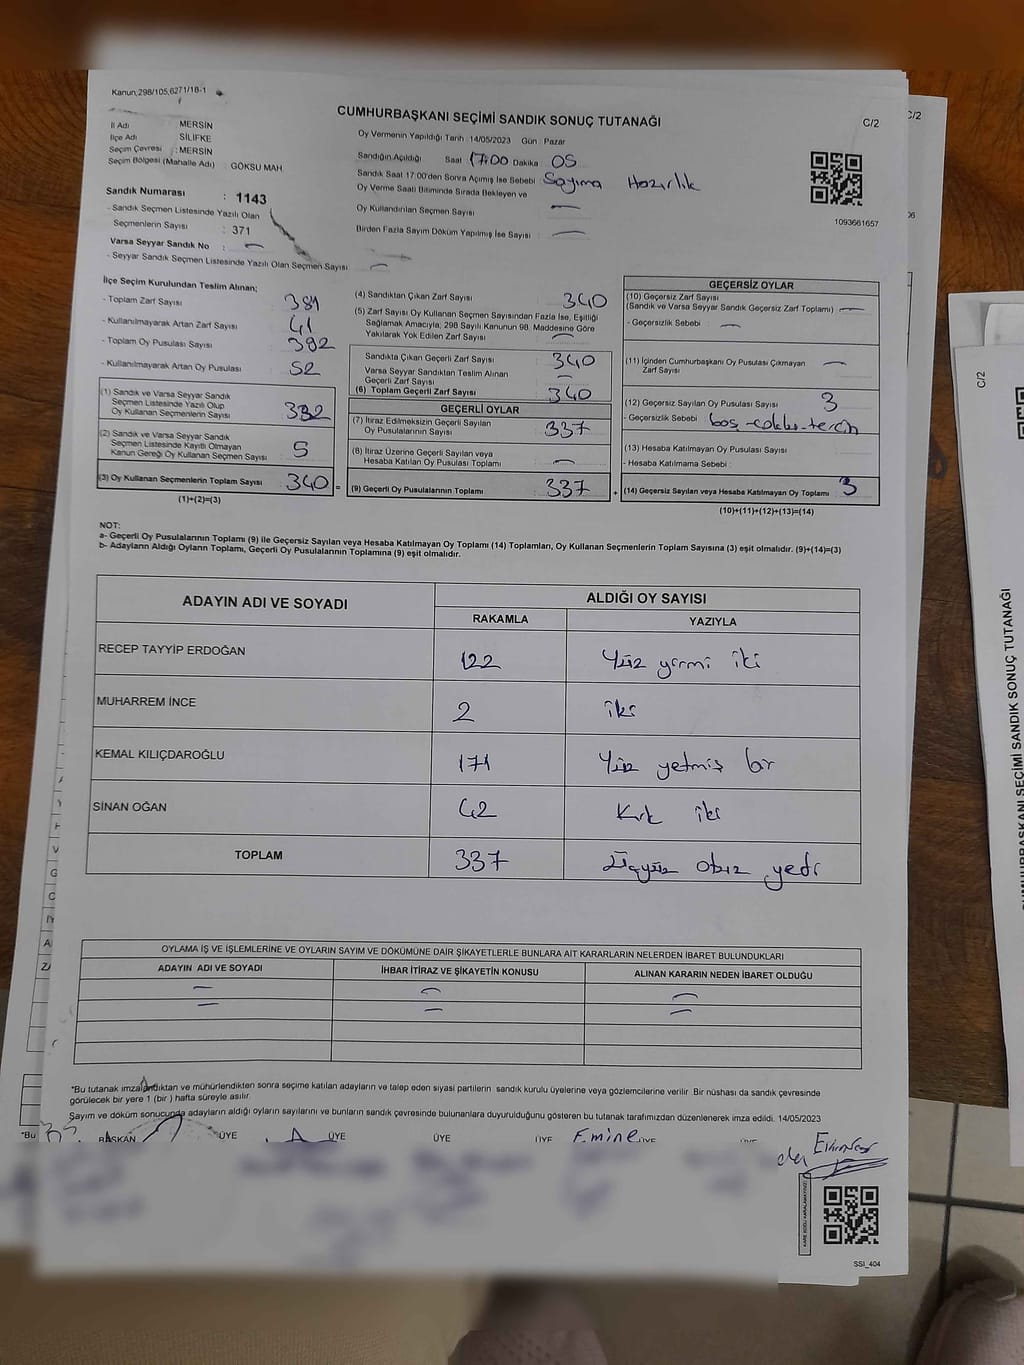 Kanun,298/105,6271/18-1
CUMHURBAŞKANI SEÇİMİ SANDIK SONUÇ TUTANAĞI
C/2
İl Adı MERSİN
İlçe Adı SİLİFKE
Seçim Çevresi : MERSİN
Seçim Bölgesi (Mahalle Adı) : GÖKSU MAH
Oy Vermenin Yapıldığı Tarih 14/05/2023 Gün Pazar
Sandığın Açıldığı Saat 17:00 Dakika 05
Sandık Saat 17:00'den Sonra Açımış İse Sebebi Sayıma Hazırlık
Oy Verme Saati Bitiminde Sırada Bekleyen ve
Oy Kullandırılan Seçmen Sayısı —
Birden Fazla Sayım Döküm Yapılmış İse Sayısı —
1093661657
Sandık Numarası : 1143
- Sandık Seçmen Listesinde Yazılı Olan
Seçmenlerin Sayısı : 371
Varsa Seyyar Sandık No : —
- Seyyar Sandık Seçmen Listesinde Yazılı Olan Seçmen Sayısı —
İlçe Seçim Kurulundan Teslim Alınan;
- Toplam Zarf Sayısı 381
- Kullanılmayarak Artan Zarf Sayısı 41
- Toplam Oy Pusulası Sayısı 392
- Kullanılmayarak Artan Oy Pusulası 52
(1) Sandık ve Varsa Seyyar Sandık
Seçmen Listesinde Yazılı Olup
Oy Kullanan Seçmenlerin Sayısı
(2) Sandık ve Varsa Seyyar Sandık
Seçmen Listesinde Kayıtlı Olmayan
Kanun Gereği Oy Kullanan Seçmen Sayısı 5
(3) Oy Kullanan Seçmenlerin Toplam Sayısı 340
(1)+(2)=(3)
(4) Sandıktan Çıkan Zarf Sayısı 340
(5) Zarf Sayısı Oy Kullanan Seçmen Sayısından Fazla İse, Eşitliği
Sağlamak Amacıyla, 298 Sayılı Kanunun 98. Maddesine Göre
Yakılarak Yok Edilen Zarf Sayısı —
Sandıkta Çıkan Geçerli Zarf Sayısı 340
Varsa Seyyar Sandıktan Teslim Alınan
Geçerli Zarf Sayısı —
(6) Toplam Geçerli Zarf Sayısı 340
GEÇERLİ OYLAR
(7) İtiraz Edilmeksizin Geçerli Sayılan
Oy Pusulalarının Sayısı 337
(8) İtiraz Üzerine Geçerli Sayılan veya
Hesaba Katılan Oy Pusulası Toplamı —
= (9) Geçerli Oy Pusulalarının Toplamı 337
GEÇERSİZ OYLAR
(10) Geçersiz Zarf Sayısı
(Sandık ve Varsa Seyyar Sandık Geçersiz Zarf Toplamı) —
- Geçersizlik Sebebi : —
(11) İçinden Cumhurbaşkanı Oy Pusulası Çıkmayan
Zarf Sayısı —
(12) Geçersiz Sayılan Oy Pusulası Sayısı 3
- Geçersizlik Sebebi : boş-çoklu-tercih
(13) Hesaba Katılmayan Oy Pusulası Sayısı :
- Hesaba Katılmama Sebebi :
+ (14) Geçersiz Sayılan veya Hesaba Katılmayan Oy Toplamı 3
(10)+(11)+(12)+(13)=(14)
NOT:
a- Geçerli Oy Pusulalarının Toplamı (9) ile Geçersiz Sayılan veya Hesaba Katılmayan Oy Toplamı (14) Toplamları, Oy Kullanan Seçmenlerin Toplam Sayısına (3) eşit olmalıdır. (9)+(14)=(3)
b- Adayların Aldığı Oyların Toplamı, Geçerli Oy Pusulalarının Toplamına (9) eşit olmalıdır.
ADAYIN ADI VE SOYADI ALDIĞI OY SAYISI
RAKAMLA YAZIYLA
RECEP TAYYİP ERDOĞAN 122 Yüz yirmi iki
MUHARREM İNCE 2 iki
KEMAL KILIÇDAROĞLU 171 Yüz yetmiş bir
SİNAN OĞAN 42 Kırk iki
TOPLAM 337 Üçyüz otuz yedi
OYLAMA İŞ VE İŞLEMLERİNE VE OYLARIN SAYIM VE DÖKÜMÜNE DAİR ŞİKAYETLERLE BUNLARA AİT KARARLARIN NELERDEN İBARET BULUNDUKLARI
ADAYIN ADI VE SOYADI İHBAR İTİRAZ VE ŞİKAYETİN KONUSU ALINAN KARARIN NEDEN İBARET OLDUĞU
*Bu tutanak imzalandıktan ve mühürlendikten sonra seçime katılan adayların ve talep eden siyasi partilerin sandık kurulu üyelerine veya gözlemcilerine verilir. Bir nüshası da sandık çevresinde
görülecek bir yere 1 (bir) hafta süreyle asılır.
Sayım ve döküm sonucunda adayların aldığı oyların sayılarını ve bunların sandık çevresinde bulunanlara duyurulduğunu gösteren bu tutanak tarafımızdan düzenlenerek imza edildi. 14/05/2023
*Bu
BAŞKAN ÜYE ÜYE ÜYE ÜYE Emine ÜYE
SSI_404
C/2
C/2
CUMHURBAŞKANI SEÇİMİ SANDIK SONUÇ TUTANAĞI